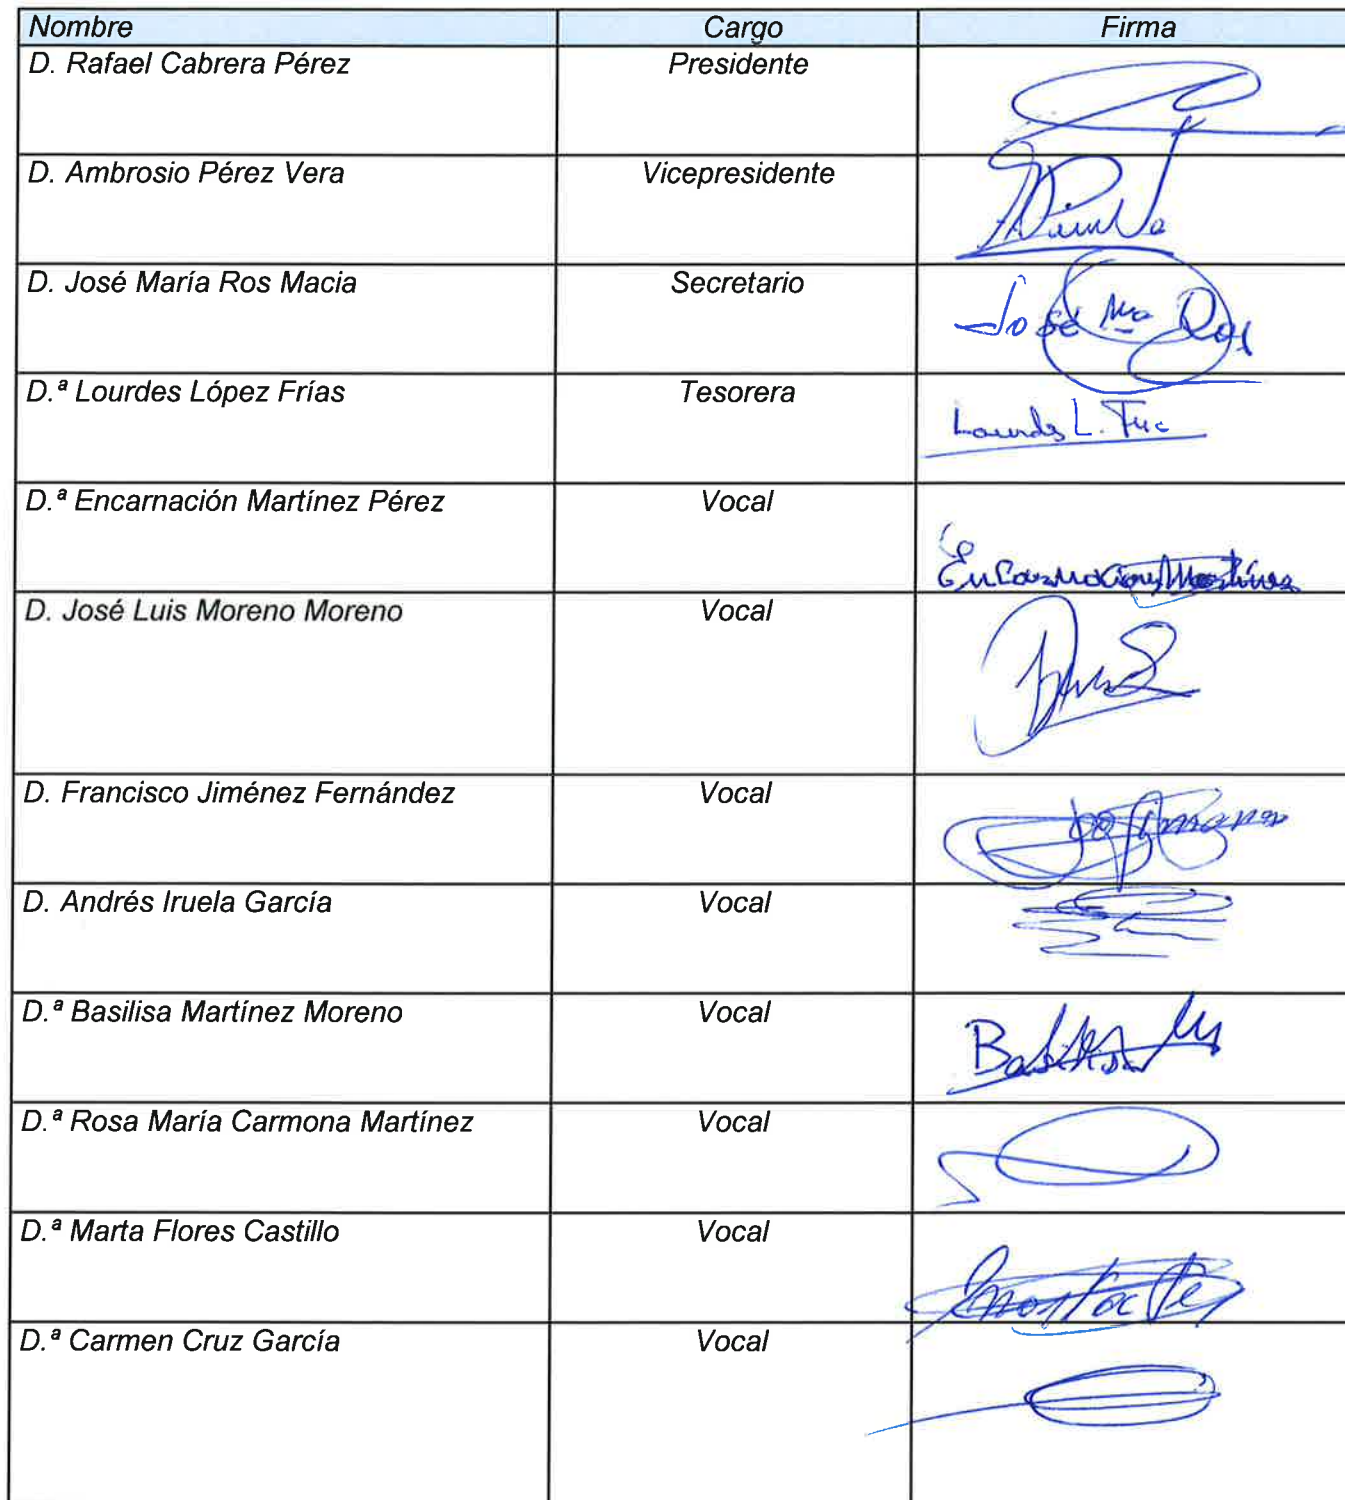 Nombre Cargo Firma
D. Rafael Cabrera Pérez Presidente
D. Ambrosio Pérez Vera Vicepresidente
D. José María Ros Macia Secretario
José Mª Ros
D.ª Lourdes López Frías Tesorera
Lourdes L.
D.ª Encarnación Martínez Pérez Vocal
Encarnacion Martínez
D. José Luis Moreno Moreno Vocal
D. Francisco Jiménez Fernández Vocal
D. Andrés Iruela García Vocal
D.ª Basilisa Martínez Moreno Vocal
D.ª Rosa María Carmona Martínez Vocal
D.ª Marta Flores Castillo Vocal
D.ª Carmen Cruz García Vocal